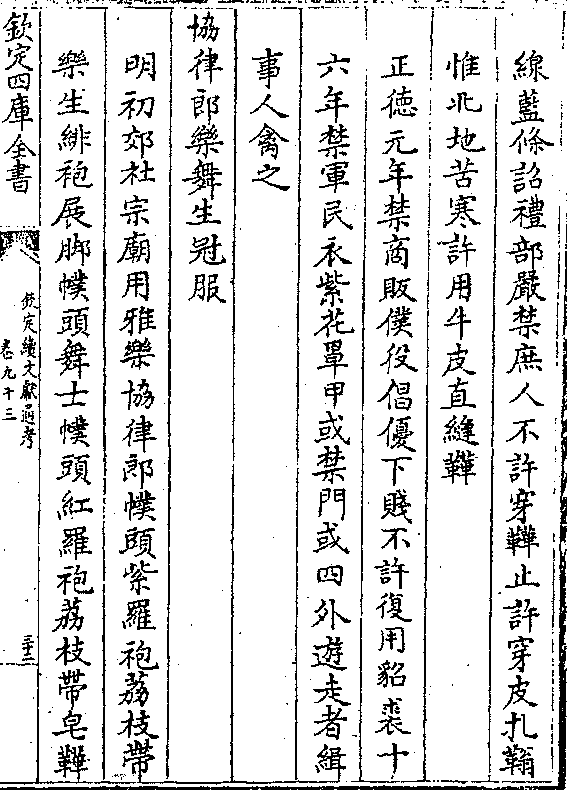 線藍條詔禮部嚴禁庶人不許穿鞾止許穿皮扎䩺
惟北地苦寒許用牛皮直縫鞾
正徳元年禁商販僕役倡優下賤不許復用貂裘十
六年禁軍民衣紫花罩甲或禁門或四外遊走者緝
事人禽之
協律郎樂舞生冠服
明初郊社宗廟用雅樂協律郎幞頭紫羅袍荔枝帶
樂生緋袍展脚幞頭舞士幞頭紅羅袍荔枝帶皂鞾
欽定四庫全書
欽定續文獻通考
卷九十三
三十二